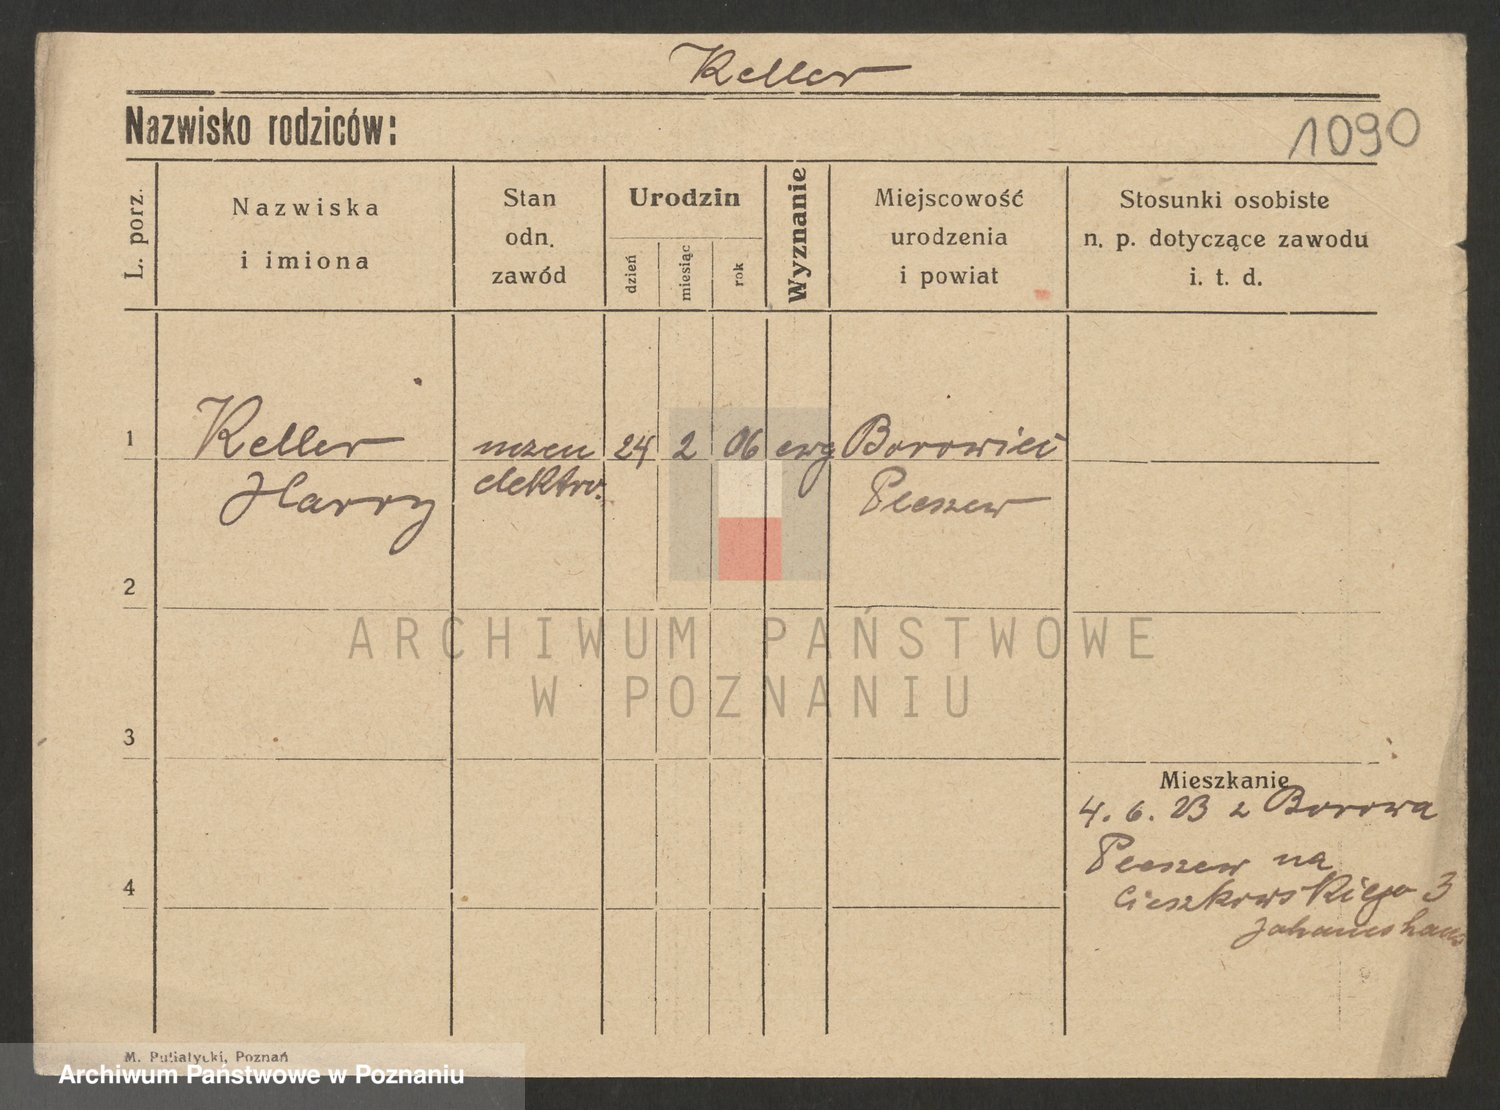 Keller
Nazwisko rodziców:
1090
L. porz.
Nazwiska
i imiona
Stan
odn.
zawód
Urodzin
dzień
miesiąc
rok
Wyznanie
Miejscowość
urodzenia
i powiat
Stosunki osobiste
n. p. dotyczące zawodu
i. t. d.
1 Keller uczen 24 2 06 ewg Borowiec
Harry elektro. Pleszew
2
ARCHIWUM PAŃSTWOWE
W POZNANIU
3
Mieszkanie
4. 6. 23 z Borowa
Pleszew na
4
Cieszkowskiego 3
Johanneshaus
M. Putiatycki, Poznań
Archiwum Państwowe w Poznaniu